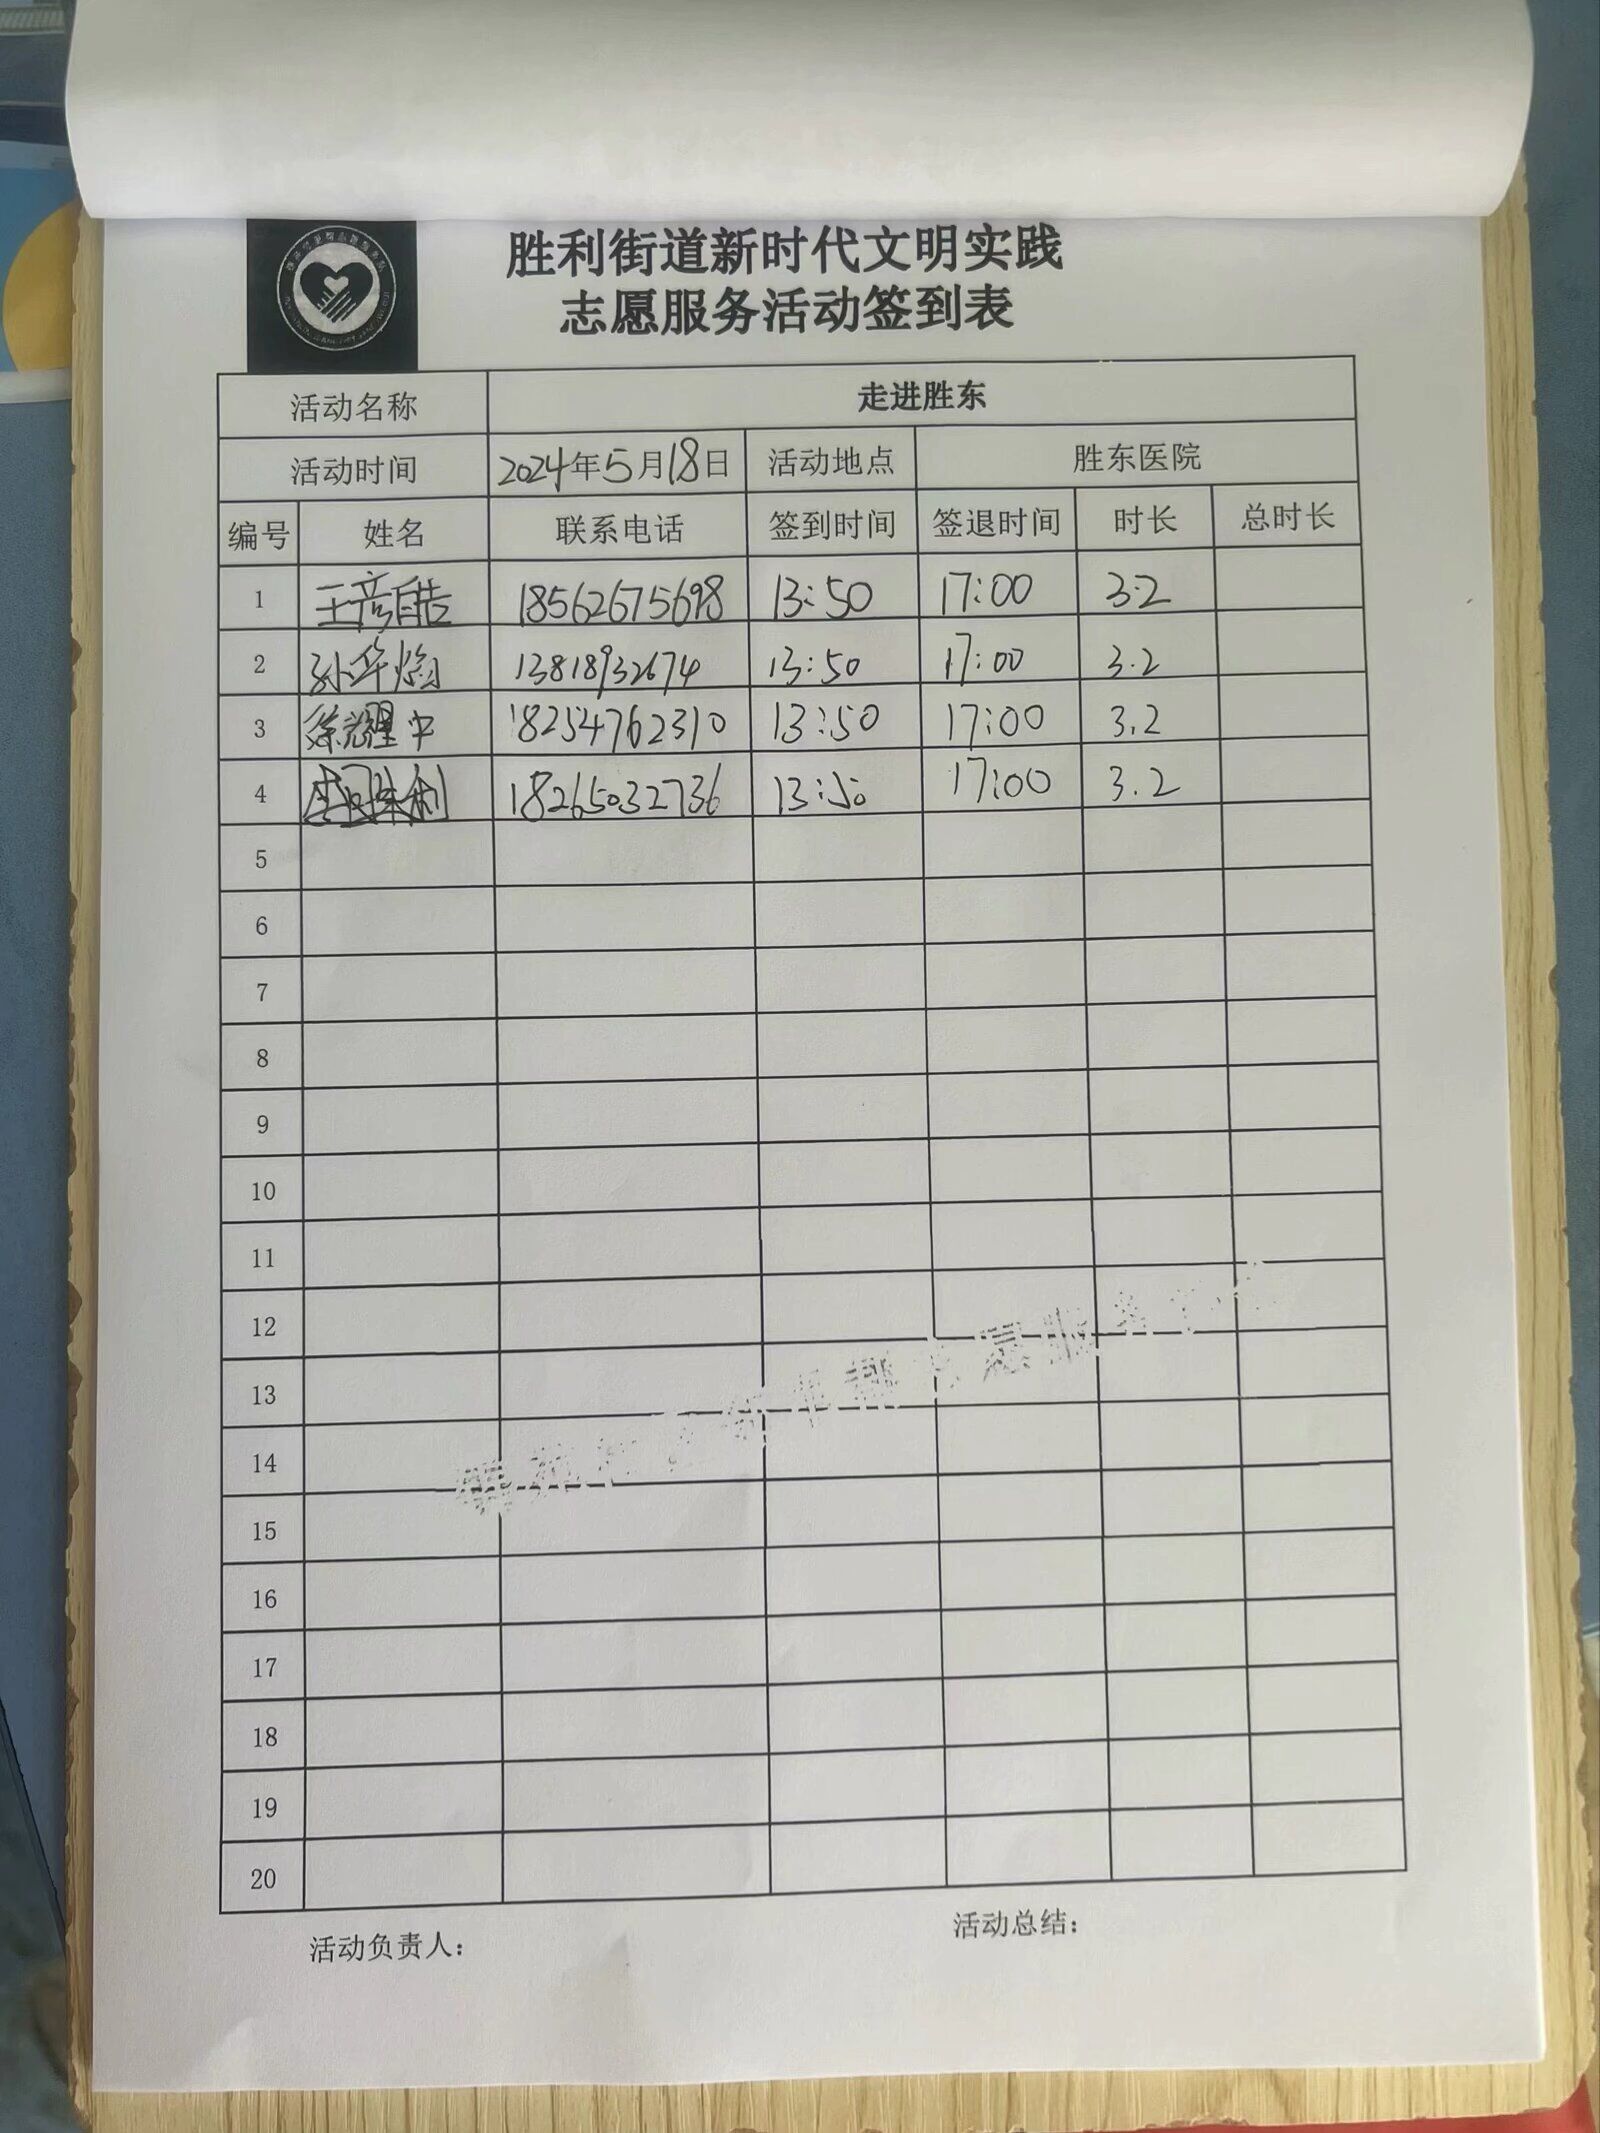 胜利街道新时代文明实践
志愿服务活动签到表
活动名称 走进胜东
活动时间 2024年5月18日 活动地点 胜东医院
编号 姓名 联系电话 签到时间 签退时间 时长 总时长
1 王彦皓 18562675698 13:50 17:00 3.2
2 孙华焰 13818932674 13:50 17:00 3.2
3 徐耀中 18254762310 13:50 17:00 3.2
4 18265032736 13:50 17:00 3.2
5
6
7
8
9
10
11
12
13
14
15
16
17
18
19
20
活动负责人：
活动总结：